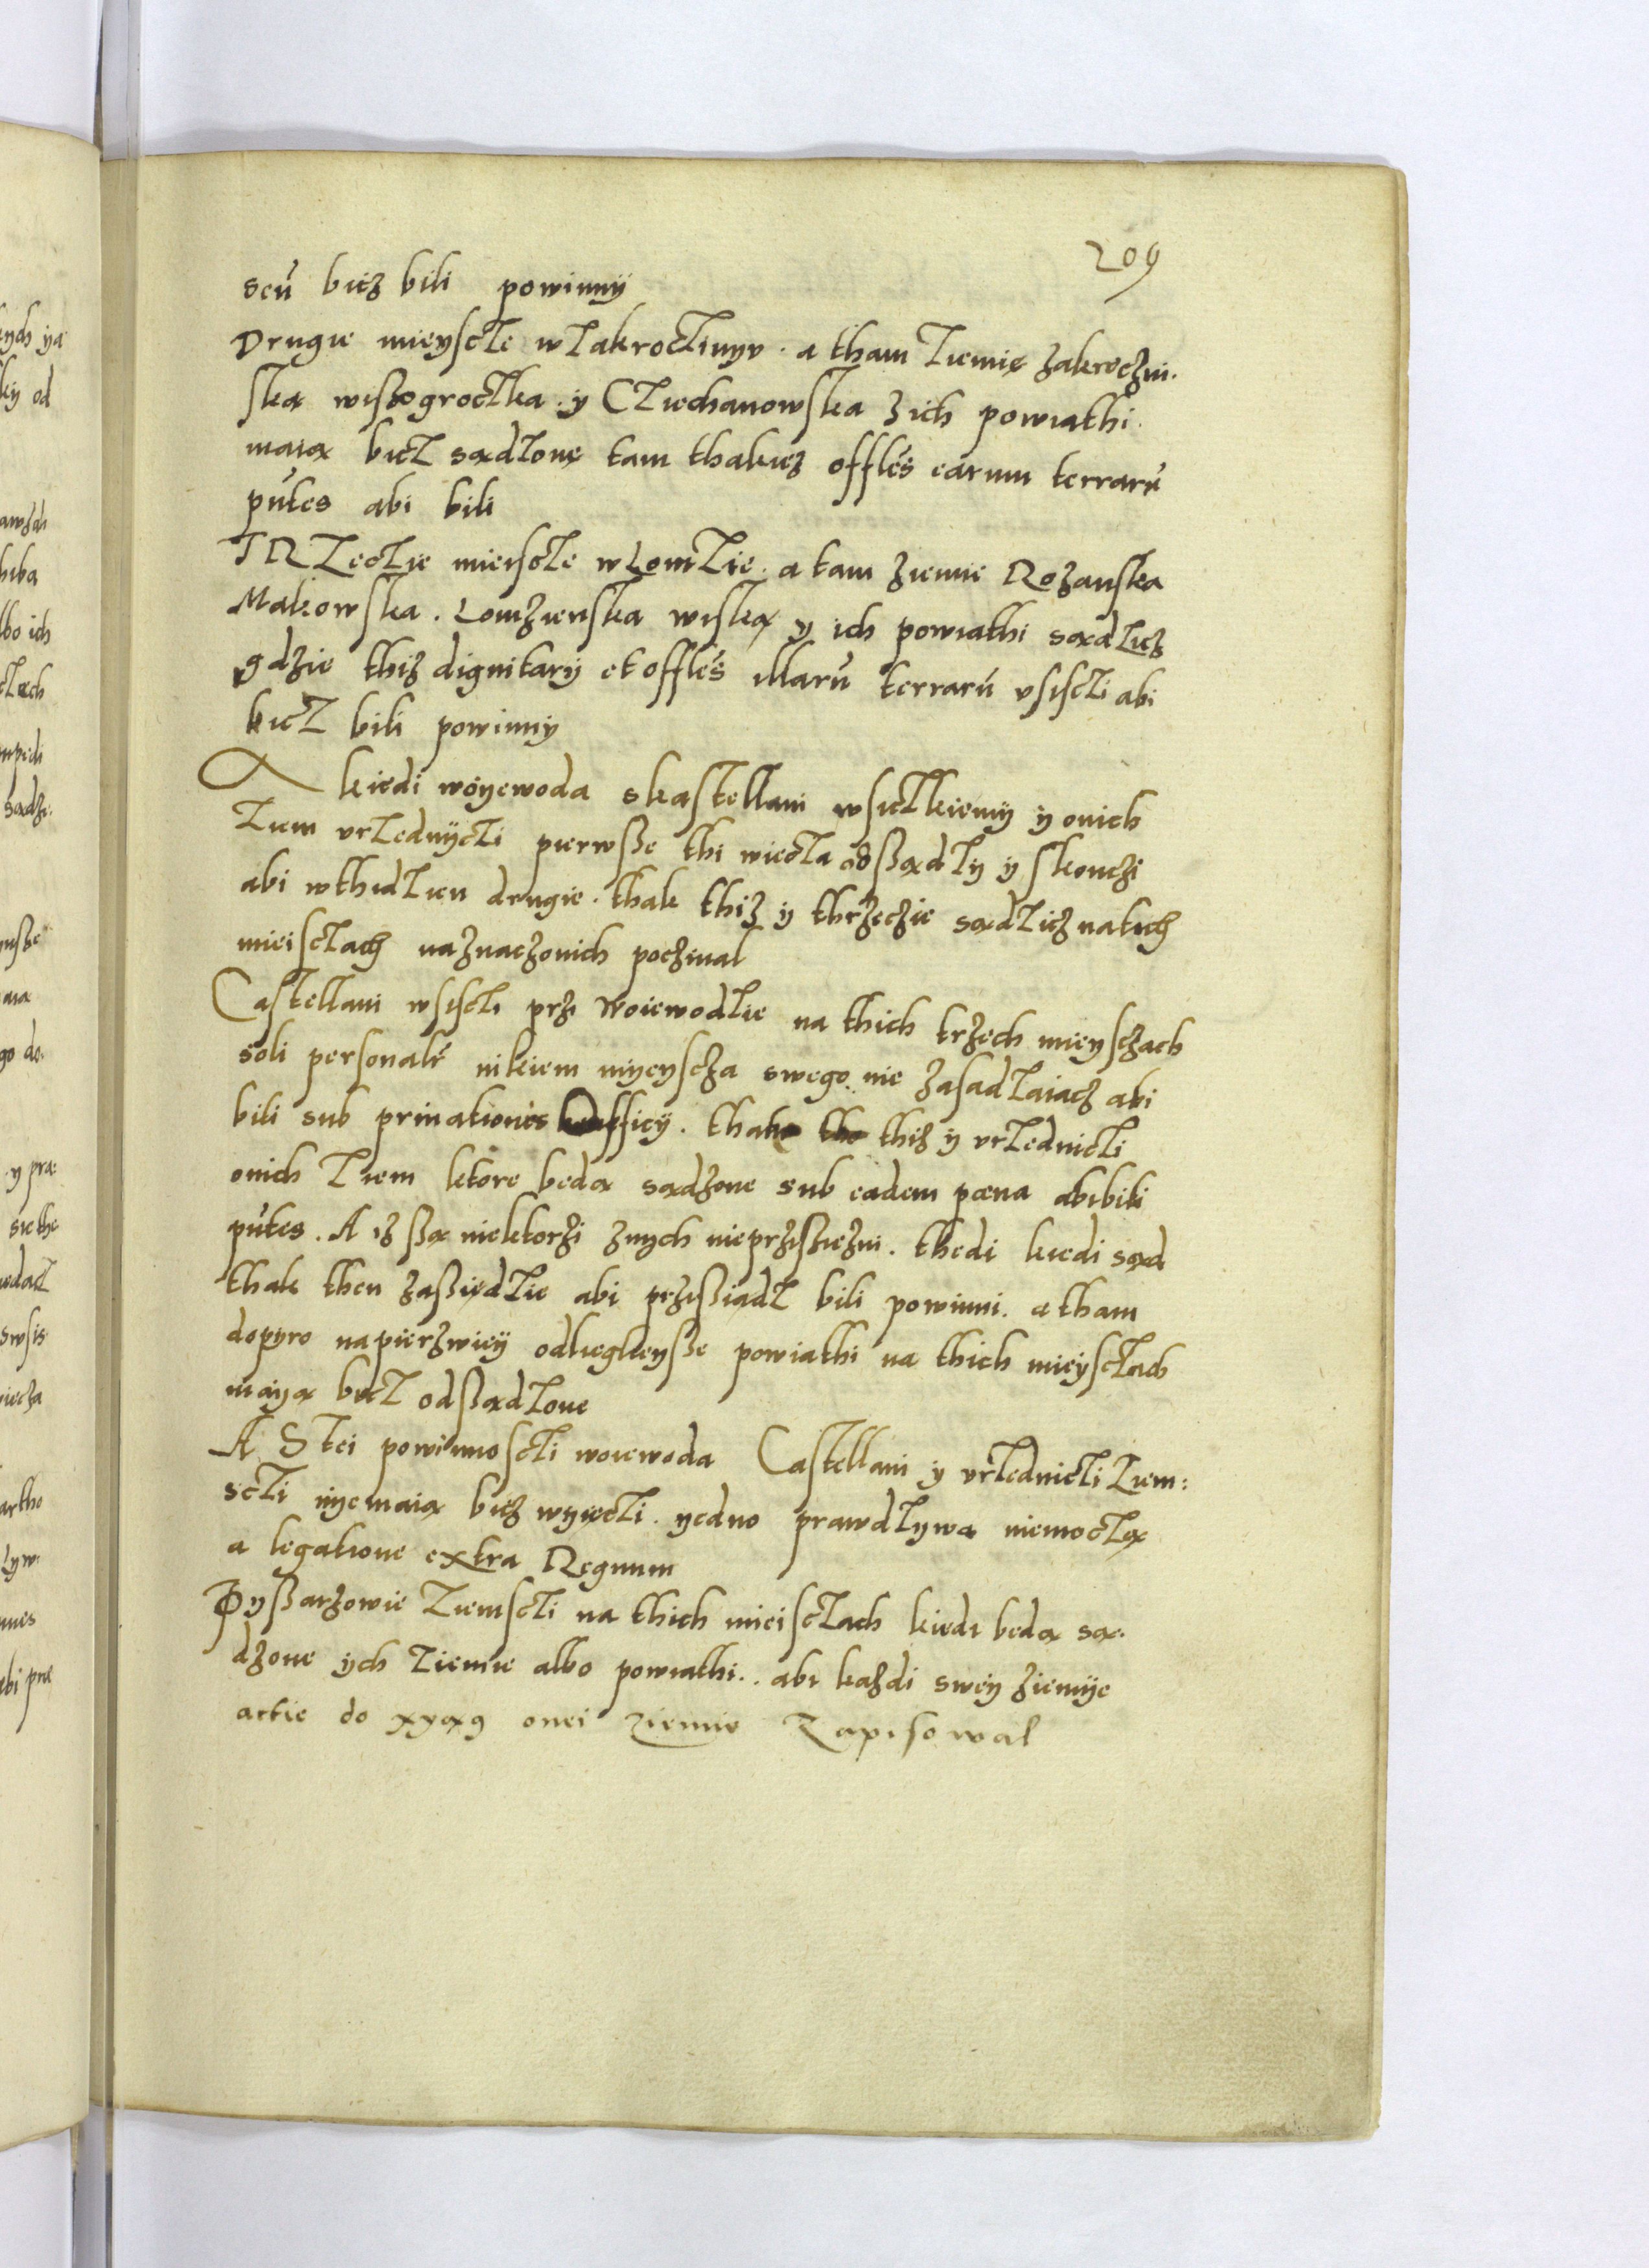 209
seū bicz bili powinny
Drugie mieyscze w Zakroczimyv . a tham Ziemię Zakroczim.
ska wiszogroczka . y Cziechanowska z ich powiathi .
maią bicz sądzonę tam thakież offles earum terrarū
pūtes abi bili
TRZeczie mieiscze w Łomzie . a tam ziemie Rożanska
Makowska . Lomzienska wiską y ich powiathi sądzicz
gdzie thiż dignitarij et offles illarū terrarū vsisczi abi
bicz bili powinny
A kiedi woyewoda s kastellani wsiczkiemy y onich
Ziem vrzednyczi pierwsze thi wiecza odsządzy y skonczi
abi w thidzien drugie . thak thiż y thrzeczie sądzicz na tich
mieisczach naznaczonich poczinal
Castellani wsisczi prżi Woiewodzie na thich trzech mieysczach
soli personalr̄ nikiem myeyscza swego . nie zasadzaiącz abi
bili sub priuationis officij . thak thiż y vrzedniczi
onich Ziem ktore beda sądzone sub eadem pœna abi bili
pūtes . A iż są niektorzi z nych nieprżisziezni . thedi kiedi sąd
thak then zasziędzie abi przisziadz bili powinni . a tham
dopyro napierzwiey odlieglieysze powiathi na thich mieysczach
maya bicz odsządzone
A S tei powinnosczi woiewoda Castellani y vrzedniczi Ziem:
sczi nyemaią bicz wyięczi . yedno prawdzywą niemoczą
a legatione extra Regnum
Pyszarzowie Ziemsczi na thich mieisczach kiedi beda są.
dzone ych Ziemie albo powiathi . . abi każdi swey ziemye
actie do xyąg onei ziemie Zapisowal